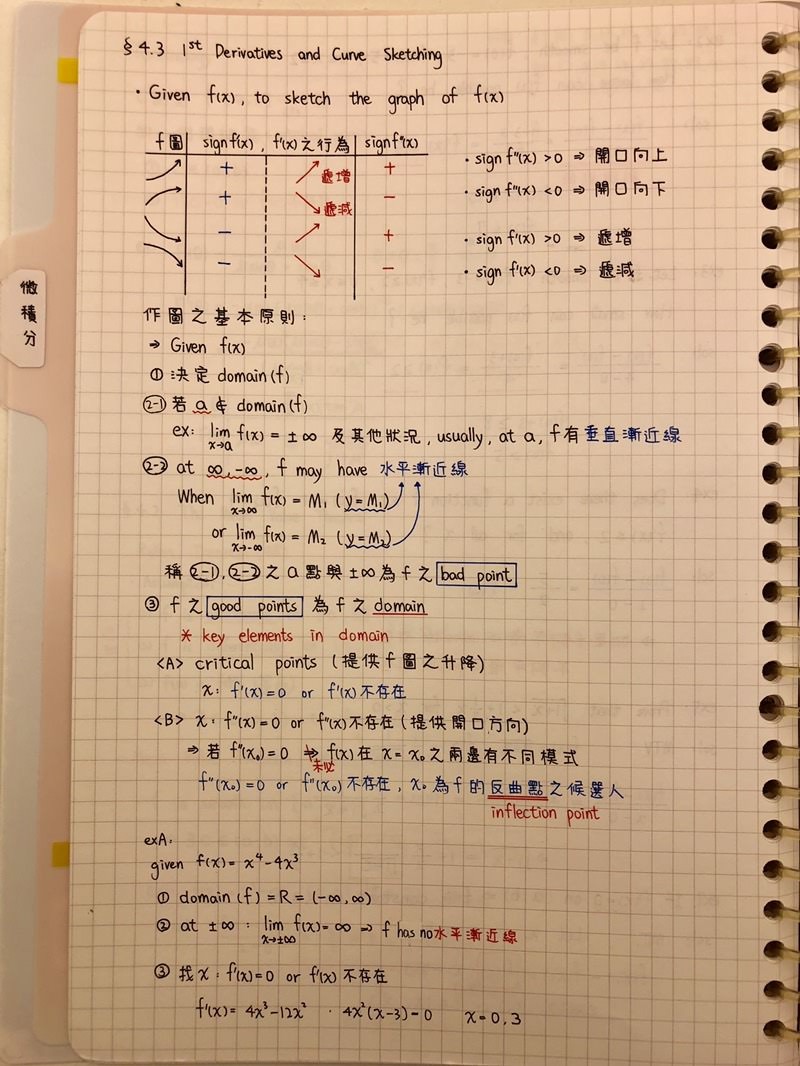 § 4.3 1st Derivatives and Curve Sketching
• Given f(x), to sketch the graph of f(x)
f 圖 sign f'(x), f'(x) 之行為 sign f''(x)
+ ↗ 遞增 +
+ ↘ 遞減 −
− ↗ +
− ↘ −
• sign f''(x) > 0 ⇒ 開口向上
• sign f''(x) < 0 ⇒ 開口向下
• sign f'(x) > 0 ⇒ 遞增
• sign f'(x) < 0 ⇒ 遞減
微積分
作圖之基本原則:
⇒ Given f(x)
① 決定 domain(f)
(2-1) 若 a ∉ domain(f)
ex: lim x→a f(x) = ±∞ 及其他狀況, usually, at a, f 有垂直漸近線
(2-2) at ∞, -∞, f may have 水平漸近線
When lim x→∞ f(x) = M₁ (y = M₁)
or lim x→-∞ f(x) = M₂ (y = M₂)
稱 (2-1), (2-2) 之 a 點與 ±∞ 為 f 之 bad point
③ f 之 good points 為 f 之 domain
* key elements in domain
<A> critical points (提供 f 圖之升降)
x: f'(x) = 0 or f'(x) 不存在
<B> x: f''(x) = 0 or f''(x) 不存在 (提供開口方向)
⇒ 若 f''(x₀) = 0 ⇏ f(x) 在 x = x₀ 之兩邊有不同模式
未必
f''(x₀) = 0 or f''(x₀) 不存在, x₀ 為 f 的反曲點之候選人
inflection point
exA:
given f(x) = x⁴ - 4x³
① domain(f) = R = (-∞, ∞)
② at ±∞ : lim x→±∞ f(x) = ∞ ⇒ f has no 水平漸近線
③ 找 x: f'(x) = 0 or f'(x) 不存在
f'(x) = 4x³ - 12x² · 4x²(x-3) = 0 x = 0, 3